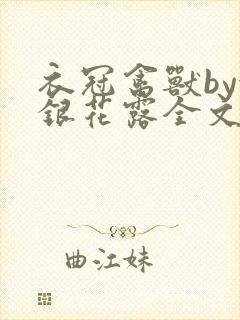 衣冠禽獸by
銀花露全文
曲江妹